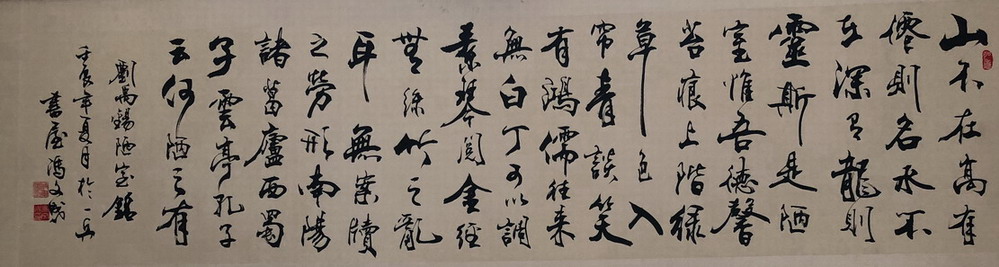 山不在高有
僊則名水不
在深有龍則
靈斯是陋
室惟吾德馨
苔痕上階緑
草色入
帘青談笑
有鴻儒往来
無白丁可以調
素琴閲金経
無絲竹之亂
耳無案牘
之勞形南陽
諸葛廬西蜀
子雲亭孔子
云何陋之有
劉禹錫陋室銘
壬辰年夏月於一
書屋馮文